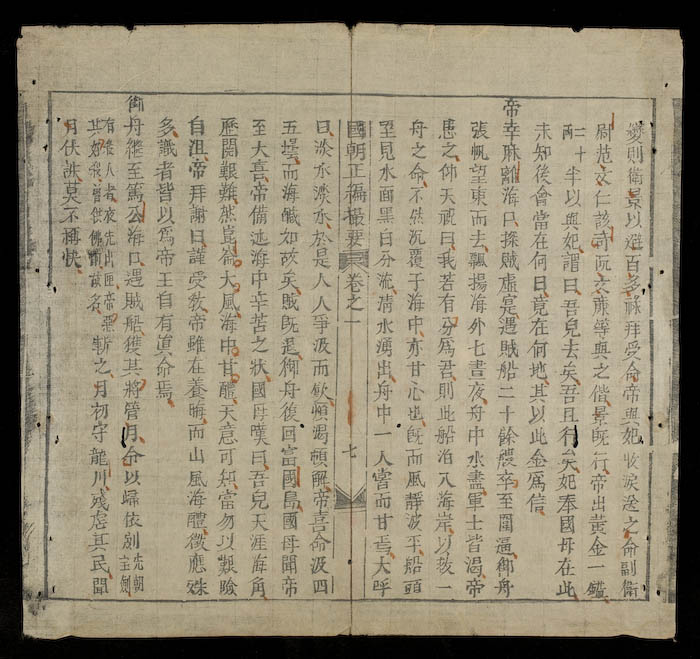 變則衛景以遊百多祿拜受命帝與妃收淚送之命副衛
尉范文仁該奇阮文廉等與之偕景既行帝出黃金一鎰
二十兩半以與妃謂曰吾兒去矣吾且行矣妃奉國母在此
未知後會當在何日竟在何地其以此金為信
帝幸麻離海口探賊虛寔遇賊船二十餘艘卒至圍逼御舟
張帆望東而去飄揚海外七晝夜舟中水盡軍士皆渴帝
患之仰天祝曰我若有分為君則此船泊入海岸以救一
舟之命不然沉覆于海中亦甘心也既而風靜波平船頭
至見水面黑白分流清水湧出舟中一人嘗而甘焉大呼
國朝正編撮要 卷之一 七
曰淡水淡水於是人人爭汲而飲煩渴頓解帝喜命汲四
五壜而海鹹如故矣賊既退御舟後回富國島國母聞帝
至大喜帝備述海中辛苦之狀國母嘆曰吾兒天涯海角
歷閱艱難然崑崙大風海中甘醴天意可知當勿以艱險
自沮帝拜謝曰謹受教帝雖在養晦而山風海醴徵應殊
多識者皆以為帝王自有眞命焉
御舟繼至篤公海口遇賊船獲其將管月命以歸依劍先朝宝劍
有佞人者夜先出匣帝惡其如我嘗供佛頭故名斬之月初守龍川殘虐其民聞
月伏誅莫不稱快